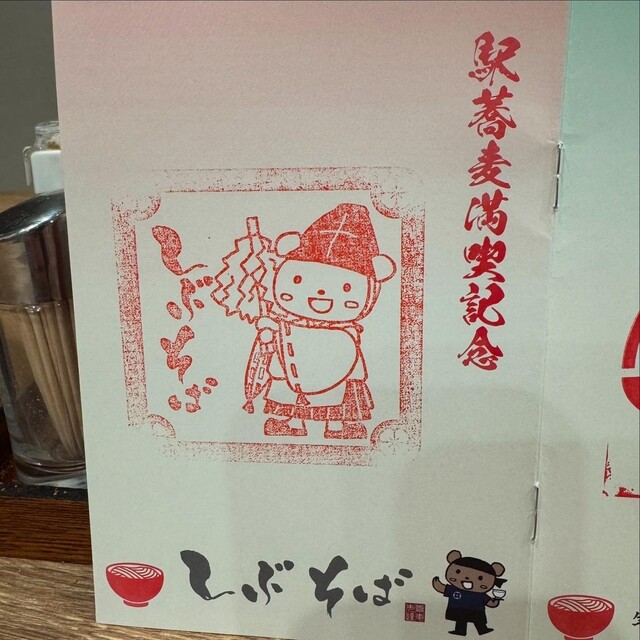 駅蕎麦満喫記念
しぶそば
しぶそば